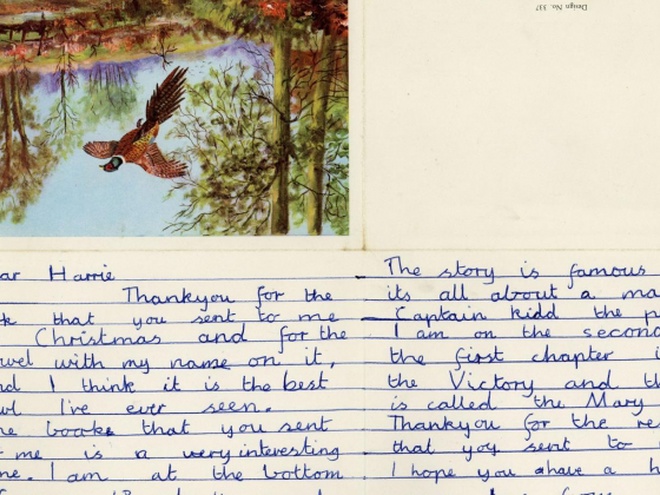 Design No. 337
ar Harrie
Thankyou for the
k that you sent to me
Christmas and for the
wel with my name on it,
nd I think it is the best
wl I've ever seen.
he book that you sent
me is a very interesting
ne. I am at the bottom
The story is famous
its all about a ma
Captain kidd the p
I am on the secon
the first chapter i
the Victory and th
is called the Mary
Thankyou for the re
that you sent to
I hope you have a h